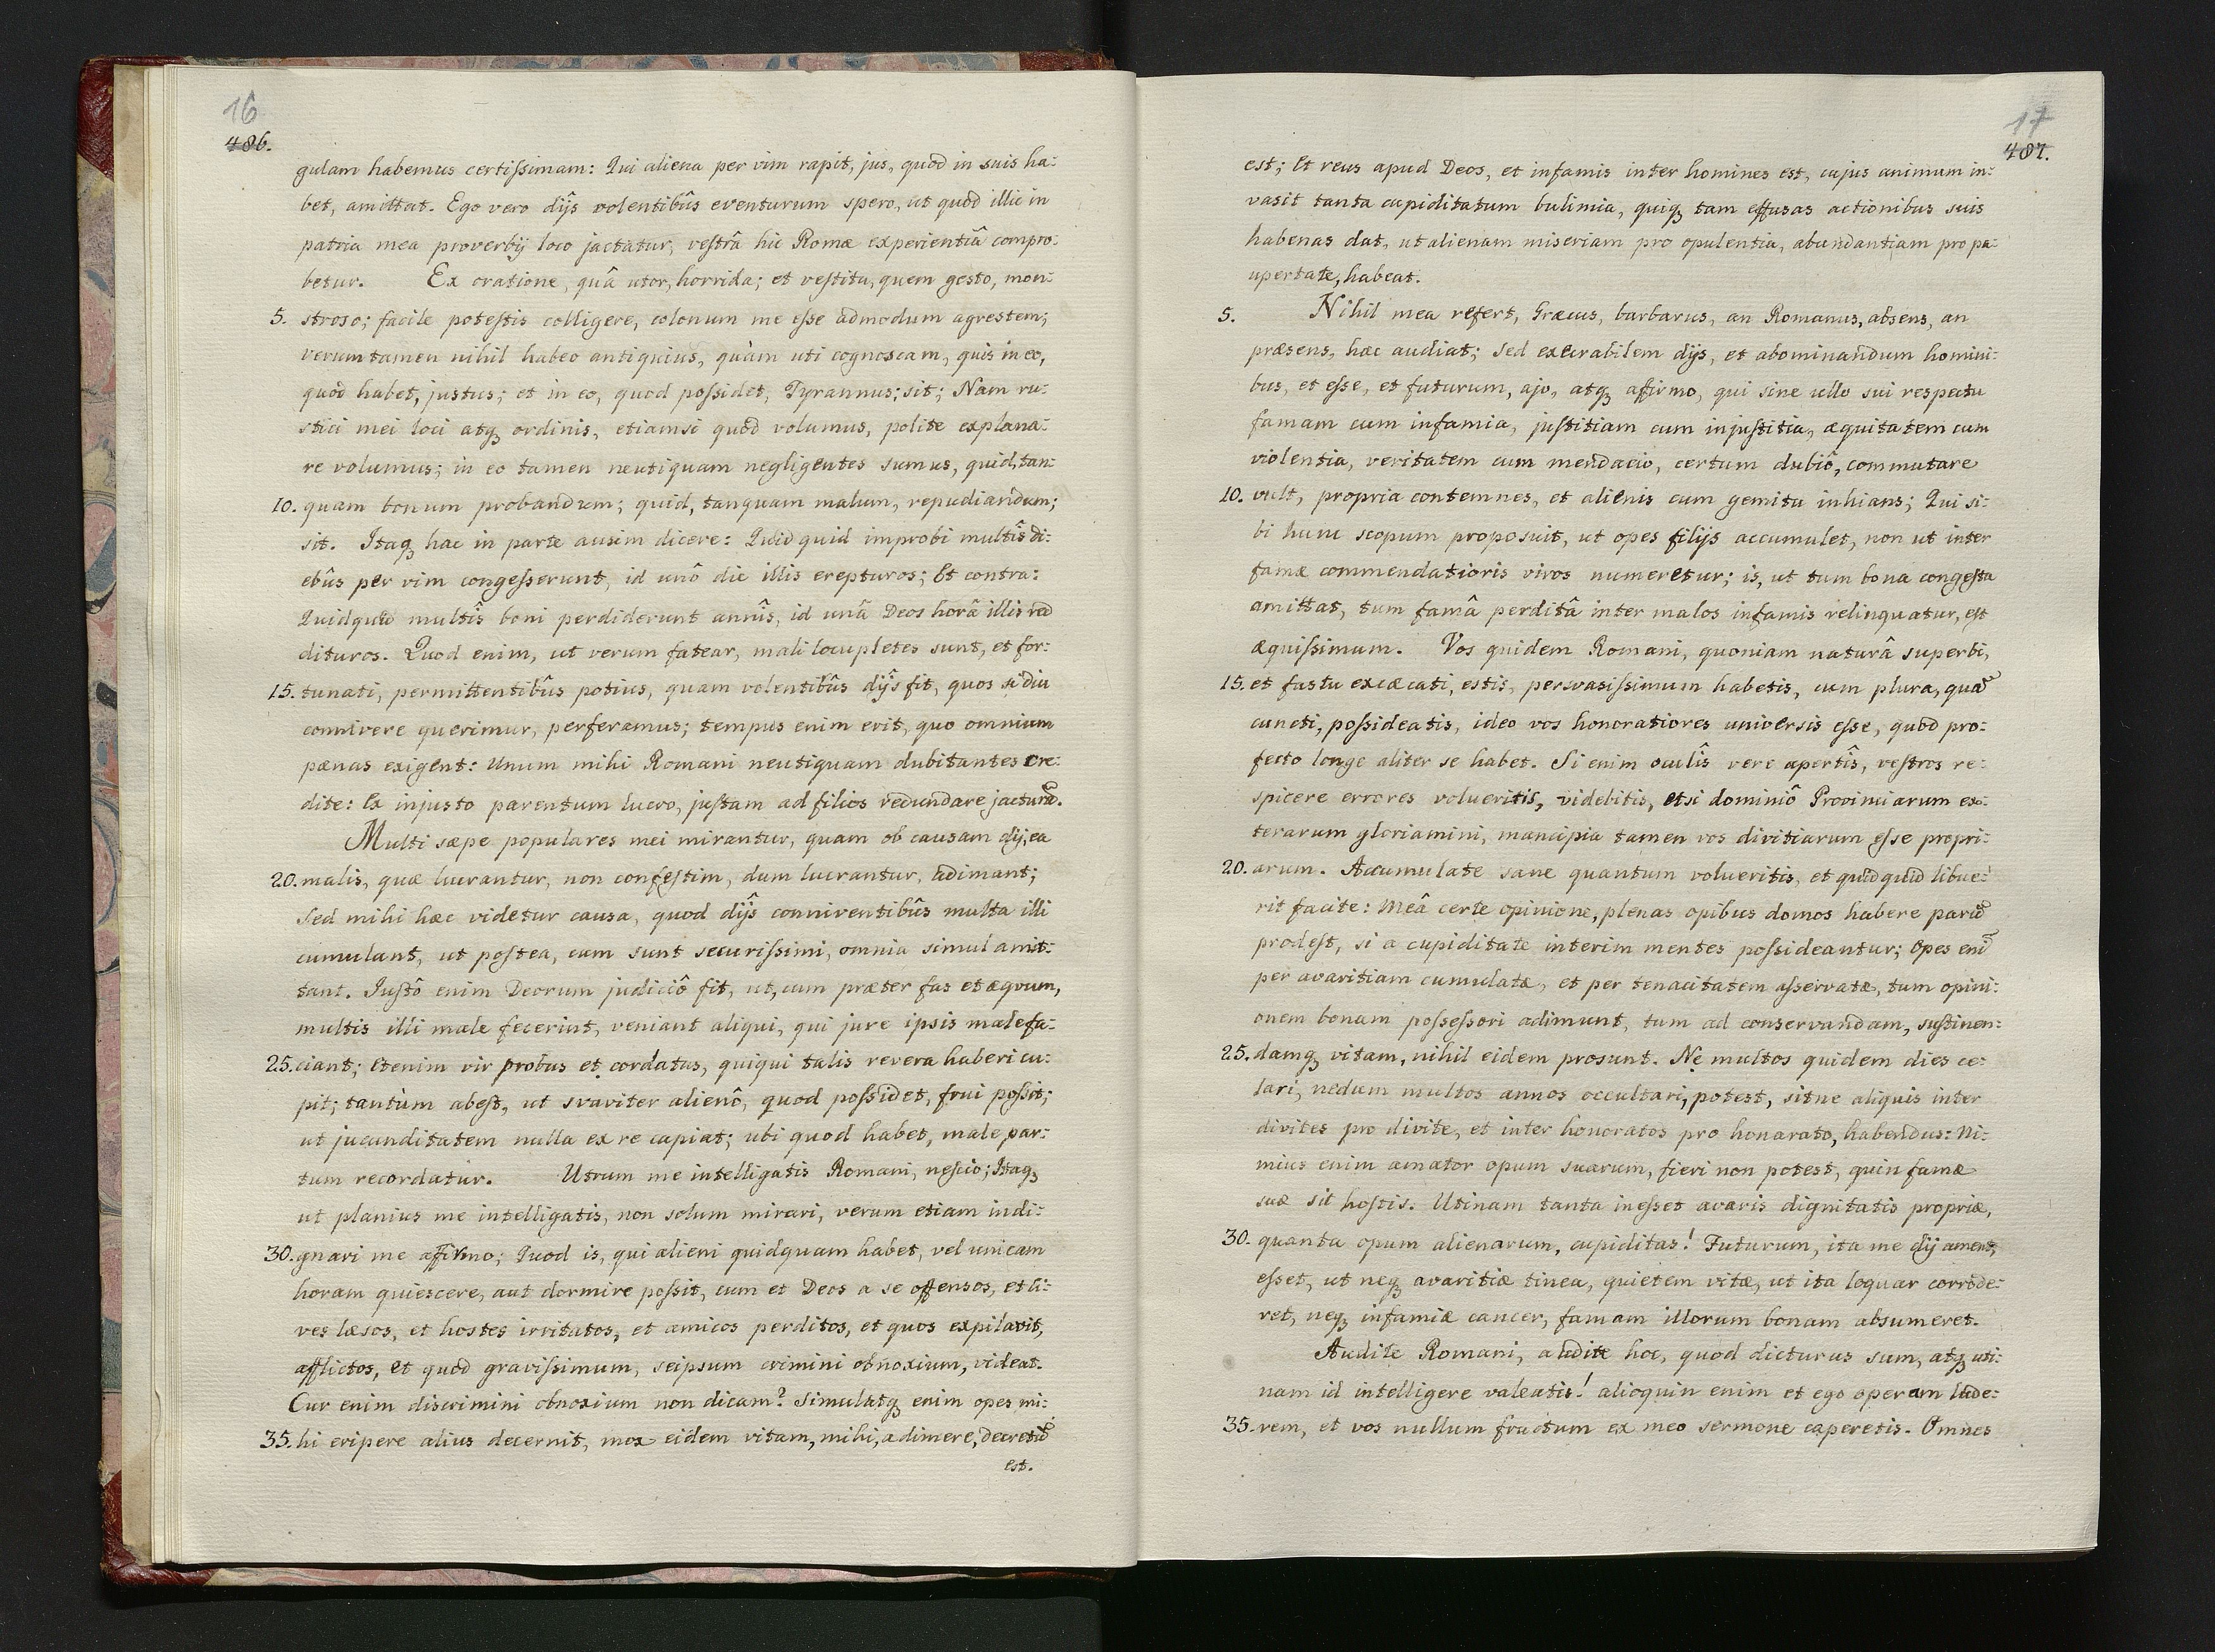 16
486.
gulam habemus certissimam: Qui aliena per vim rapit, jus, quod in suis ha:
bet, amittat. Ego vero dijs volentibûs eventurum spero, ut quod illic in
patria mea proverbij loco jactatur, vestrâ hic Romæ experientiâ compro:
betur. Ex oratione, quâ utor, horrida; et vestitu, quem gesto, mon:
5. stroso; facile potestis colligere, colonum me esse admodum agrestem;
verum tamen nihil habeo antiquius, quàm uti cognoscam, quis in eo,
quod habet, justus; et in eo, quod possidet, Tyrannus; sit; Nam ru:
stici mei loci atq ordinis, etiamsi quod volumus, polite explana:
re volumus; in eo tamen neutiquam negligentes sumus, quid, tan:
10. quam bonum probandum; quid, tanquam malum, repudiandum;
sit. Itaq hac in parte ausim dicere: Quidquid improbi multîs di:
ebûs per vim congesserunt, id unô die illis erepturos; Et contra:
Quidquid multîs boni perdiderunt annîs, id unâ Deos horâ illis red
dituros. Quod enim, ut verum fatear, mali locupletes sunt, et for:
15. tunati, permittentibûs potius, quam volentibûs dijs fit, quos si diu
connivere querimur, perferamus; tempus enim erit, quo omnium
pænas exigent: Unum mihi Romani neutiquam dubitantes cre:
dite: Ex injusto parentum lucro, justam ad filios redundare jacturã.
Multi sæpe populares mei mirantur, quam ob causam dij, ea
20. malis, quæ lucrantur, non confestim, dum lucrantur, adimant;
Sed mihi hæc videtur causa, quod dijs conniventibûs multa illi
cumulant, ut postea, cum sunt securissimi, omnia simul amit:
tant. Justô enim Deorum judiciô fit, ut, cum præter fas et æqvum,
multis illi male fecerint, veniant aliqui, qui jure ipsis malefa:
25. ciant; Etenim vir probus et cordatus, quiqui talis revera haberi cu:
pit; tantùm abest, ut svaviter alienô, quod possidet, frui possit;
ut jucunditatem nulla ex re capiat; ubi quod habet, male par:
tum recordatur. Utrum me intelligatis Romani, nescio; Itaq
ut planius me intelligatis, non solum mirari, verum etiam indi:
30. gnari me affirmo; Quod is, qui alieni quidquam habet, vel unicam
horam quiescere, aut dormire possit, cum et Deos a se offensos, et li:
ves læsos, et hostes irritatos, et amicos perditos, et quos expilavit,
afflictos, et quod gravissimum, seipsum crimini obnoxium, videat.
Cur enim discrimini obnoxium non dicam? Simulatq enim opes mi:
35. hi eripere alius decernit, mox eidem vitam, mihi, adimere, decretũ
est.
17
487.
est; Et reus apud Deos, et infamis inter homines est, cujus animum in:
vasit tanta cupiditatum bulimia, quiq tam effusas actionibus suis
habenas dat, ut alienam miseriam pro opulentia, abundantiam pro pa:
upertate, habeat.
5. Nihil mea refert, Græcus, barbarus, an Romanus, absens, an
præsens, hæc audiat; Sed execrabilem dijs, et abominandum homini:
bus, et esse, et futurum, ajo, atq affirmo, qui sine ullo sui respectu
famam cum infamia, justitiam cum injustitia, æquitatem cum
violentia, veritatem cum mendacio, certum dubiô, commutare
10. vult, propria contemnes, et alienis cum gemitu inhians; Qui si:
bi hunc scopum proposuit, ut opes filijs accumulet, non ut inter
famæ commendatioris viros numeretur; is, ut tum bona congesta
amittat, tum famâ perditâ inter malos infamis relinquatur, est
æquissimum. Vos quidem Romani, quoniam naturâ superbi,
15. et fastu excæcati, estis, persvasissimum habetis, cum plura, quã
cuncti, possideatis, ideo vos honoratiores universis esse, quod pro:
fecto longe aliter se habet. Si enim oculîs vere apertîs, vestros re:
spicere errores volueritis, videbitis, etsi dominiô Provinciarum ex:
terarum gloriamini, mancipia tamen vos divitiarum esse propri:
20. arum. Accumulate sane quantum volueritis, et quidquid libue:
rit facite: Meâ certe opinione, plenas opibus domos habere parũ
prodest, si a cupiditate interim mentes possideantur; Opes enĩ
per avaritiam cumulatæ, et per tenacitatem asservatæ, tum opini:
onem bonam possessori adimunt, tum ad conservandam, sustinen:
25. damq vitam, nihil eidem prosunt. Ne multos quidem dies ce:
lari, nedum multos annos occultari, potest, sitne aliquis inter
divites pro divite, et inter honoratos pro honarato, habendus: Ni:
mius enim amator opum suarum, fieri non potest, quin famæ
suæ sit hostis. Utinam tanta inesset avaris dignitatis propriæ,
30. quanta opum alienarum, cupiditas! Futurum, ita me dij ament,
esset, ut neq avaritiæ tinea, quietem vitæ, ut ita loquar corrode:
ret, neq infamiæ cancer, famam illorum bonam absumeret.
Audite Romani, audite hoc, quod dicturus sum, atq uti:
nam id intelligere valeatis! alioquin enim et ego operam lude:
35. rem, et vos nullum fructum ex meo sermone caperetis. Omnes